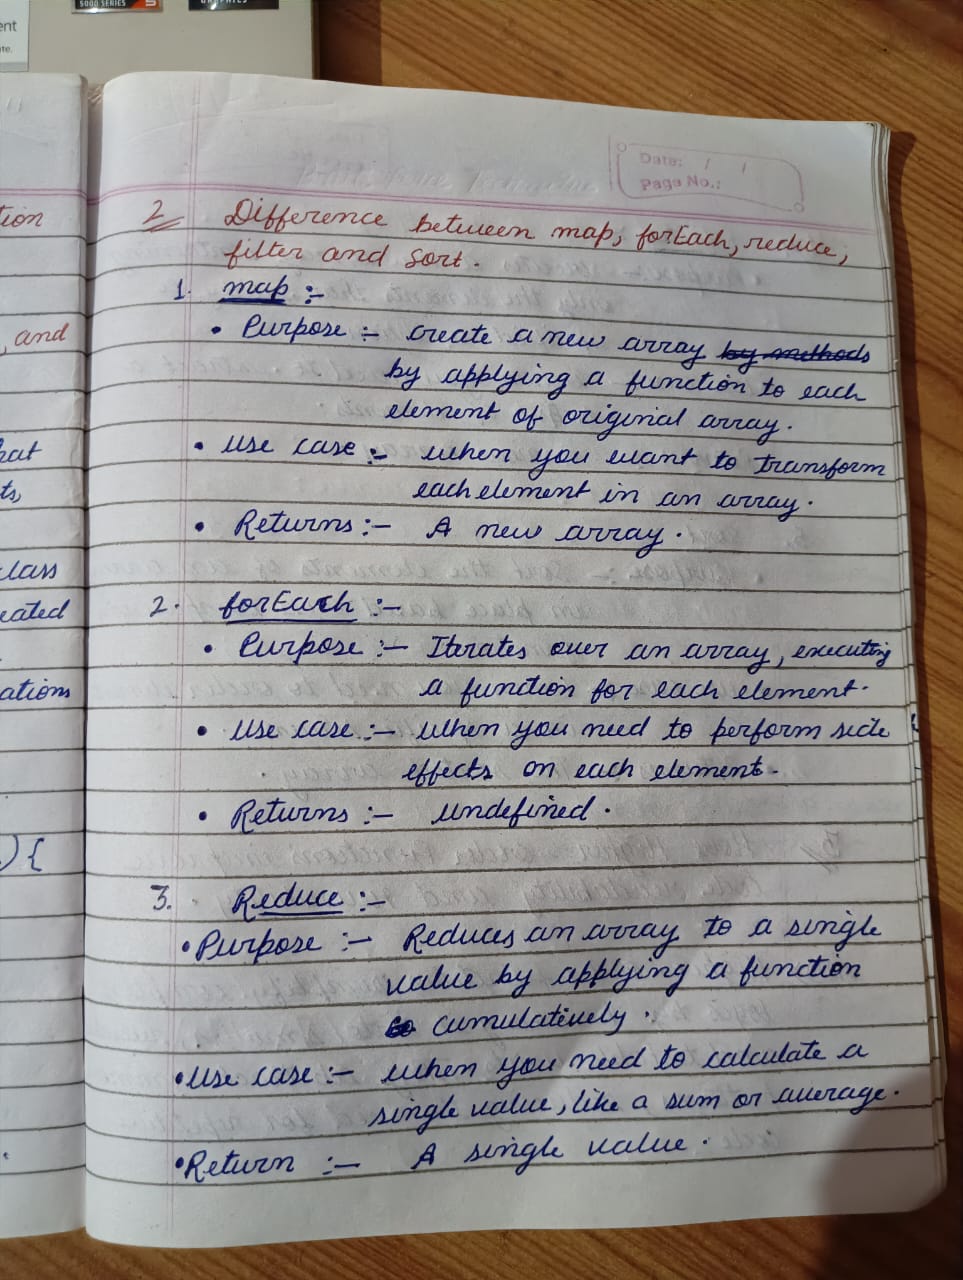 5000 SERIES
ent
Date: / /
Page No.:
2 Difference between map, forEach, reduce,
filter and sort.
1. map :-
• Purpose :- create a new array by methods
by applying a function to each
element of original array.
• Use case :- when you want to transform
each element in an array.
• Returns :- A new array.
2. forEach :-
• Purpose :- Iterates over an array, executing
a function for each element.
• Use case :- when you need to perform side
effects on each element.
• Returns :- undefined.
3. Reduce :-
• Purpose :- Reduces an array to a single
value by applying a function
cumulatively.
• Use case :- when you need to calculate a
single value, like a sum or average.
• Return :- A single value.
tion
, and
hat
ts,
lass
eated
ations
) {